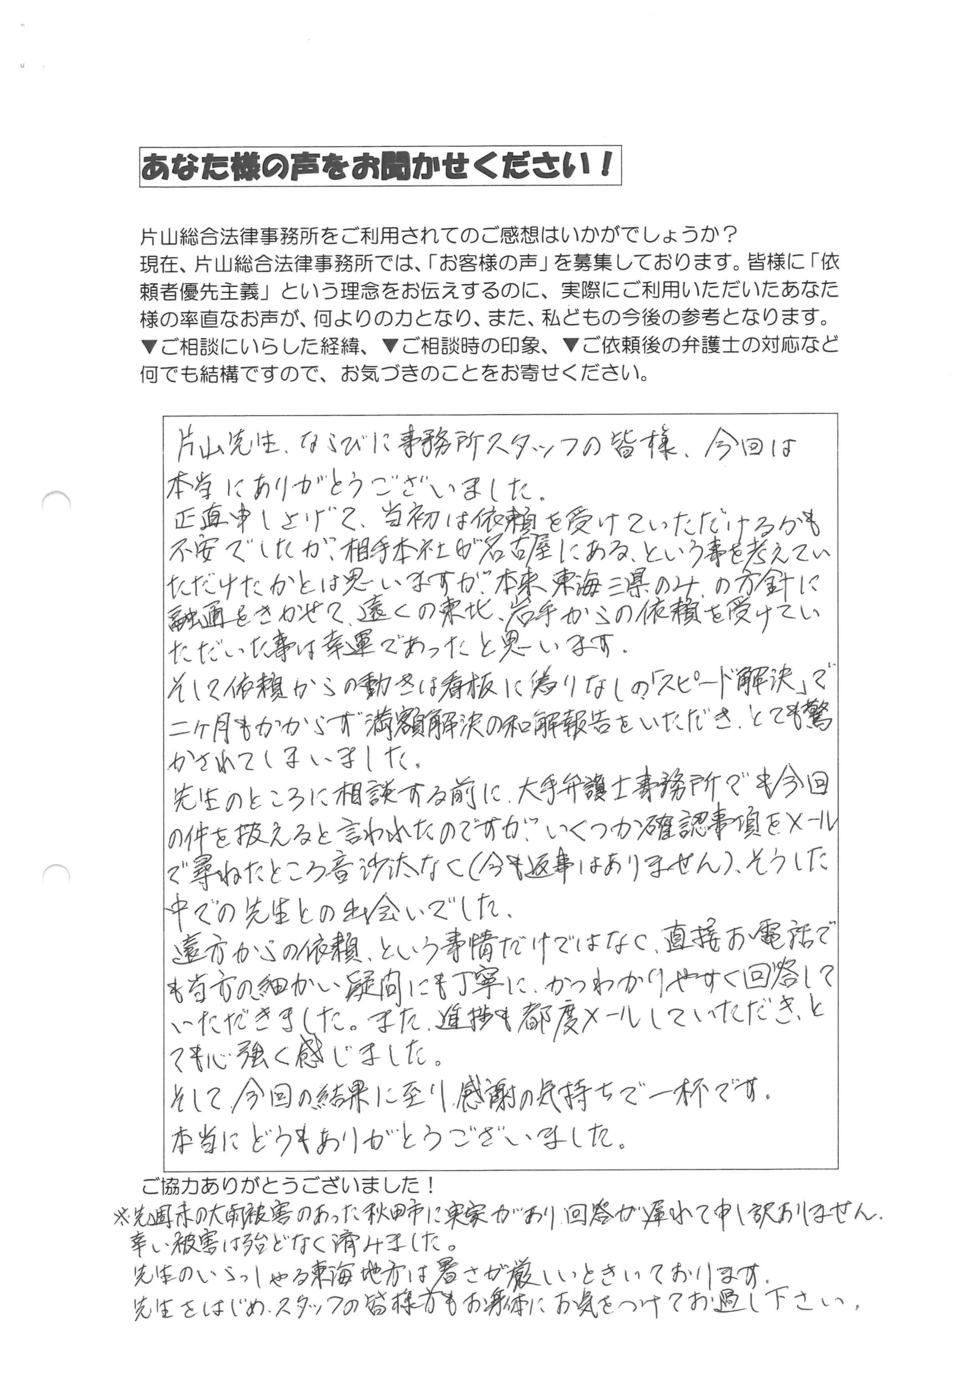 あなた様の声をお聞かせください!
片山総合法律事務所をご利用されてのご感想はいかがでしょうか?
現在、片山総合法律事務所では、「お客様の声」を募集しております。皆様に「依
頼者優先主義」という理念をお伝えするのに、実際にご利用いただいたあなた
様の率直なお声が、何よりの力となり、また、私どもの今後の参考となります。
▼ご相談にいらした経緯、▼ご相談時の印象、▼ご依頼後の弁護士の対応など
何でも結構ですので、お気づきのことをお寄せください。
片山先生、ならびに事務所スタッフの皆様、今回は
本当にありがとうございました。
正直申し上げて、当初は依頼を受けていただけるかも
不安でしたが、相手本社が名古屋にある、という事を考えてい
ただけたかとは思いますが、本来、東海三県のみ、の方針に
融通をきかせて、遠くの東北、岩手からの依頼を受けてい
ただいた事は幸運であったと思います。
そして依頼からの動きは看板に偽りなしの「スピード解決」で
二ヶ月もかからず満額解決の和解報告をいただき、とても驚
かされてしまいました。
先生のところに相談する前に、大手弁護士事務所でも今回
の件を扱えると言われたのですが、いくつか確認事項をメール
で尋ねたところ音沙汰なく(今も返事はありません)、そうした
中での先生との出会いでした。
遠方からの依頼、という事情だけではなく、直接お電話で
も当方の細かい疑問にも丁寧に、かつわかりやすく回答して
いただきました。また、進捗も都度メールしていただき、と
ても心強く感じました。
そして今回の結果に至り、感謝の気持ちで一杯です。
本当にどうもありがとうございました。
ご協力ありがとうございました!
※先週末の大雨被害のあった秋田市に実家があり、回答が遅れて申し訳ありません。
幸い被害は殆どなく済みました。
先生のいらっしゃる東海地方は暑さが厳しいときいております。
先生をはじめ、スタッフの皆様方もお身体にお気をつけてお過し下さい。